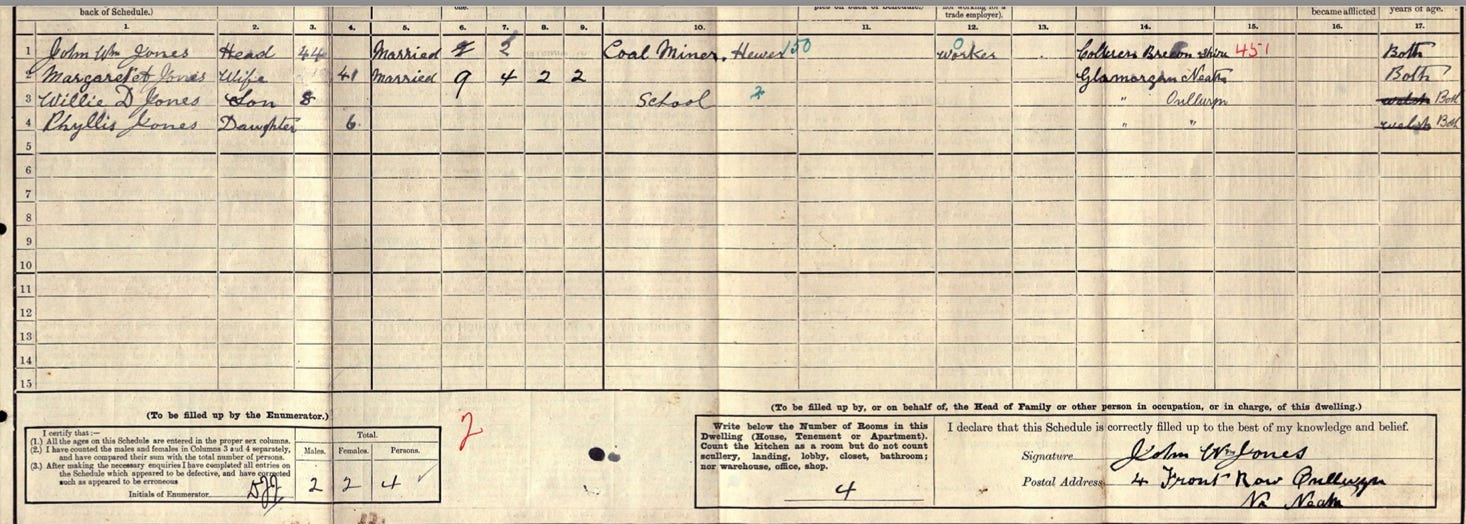 back of Schedule.) one. pie on back of Schedule.) not working for a trade employer). became afflicted years of age.
1. 2. 3. 4. 5. 6. 7. 8. 9. 10. 11. 12. 13. 14. 15. 16. 17.
1 John Wm Jones Head 44 Married 2 Coal Miner, Hewer 150 0 Worker Brecon Shire 451 Both
2 Margaret Jones Wife 41 Married 9 4 2 2 Glamorgan Neath Both
3 Willie D Jones Son 8 School " welsh Both
4 Phyllis Jones Daughter 6 " " welsh Both
5
6
7
8
9
10
11
12
13
14
15
(To be filled up by the Enumerator.)
I certify that:—
(1.) All the ages on this Schedule are entered in the proper sex columns.
(2.) I have counted the males and females in Columns 3 and 4 separately, and have compared their sum with the total number of persons.
(3.) After making the necessary enquiries I have completed all entries on the Schedule which appeared to be defective, and have corrected such as appeared to be erroneous
Initials of Enumerator
Total.
Males. Females. Persons.
2 2 4
2
(To be filled up by, or on behalf of, the Head of Family or other person in occupation, or in charge, of this dwelling.)
Write below the Number of Rooms in this
Dwelling (House, Tenement or Apartment).
Count the kitchen as a room but do not count
scullery, landing, lobby, closet, bathroom;
nor warehouse, office, shop.
4
I declare that this Schedule is correctly filled up to the best of my knowledge and belief.
Signature John Wm Jones
Postal Address 4 Front Row
Nr Neath